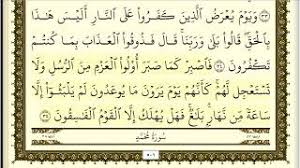 وَيَوْمَ يُعْرَضُ الَّذِينَ كَفَرُوا عَلَى النَّارِ أَلَيْسَ هَٰذَا
بِالْحَقِّ قَالُوا بَلَىٰ وَرَبِّنَا قَالَ فَذُوقُوا الْعَذَابَ بِمَا كُنتُمْ
تَكْفُرُونَ ﴿٣٤﴾ فَاصْبِرْ كَمَا صَبَرَ أُولُوا الْعَزْمِ مِنَ الرُّسُلِ وَلَا
تَسْتَعْجِل لَّهُمْ كَأَنَّهُمْ يَوْمَ يَرَوْنَ مَا يُوعَدُونَ لَمْ يَلْبَثُوا إِلَّا
سَاعَةً مِّن نَّهَارٍ بَلَاغٌ فَهَلْ يُهْلَكُ إِلَّا الْقَوْمُ الْفَاسِقُونَ ﴿٣٥﴾
سُورَةُ مُحَمَّدٍ